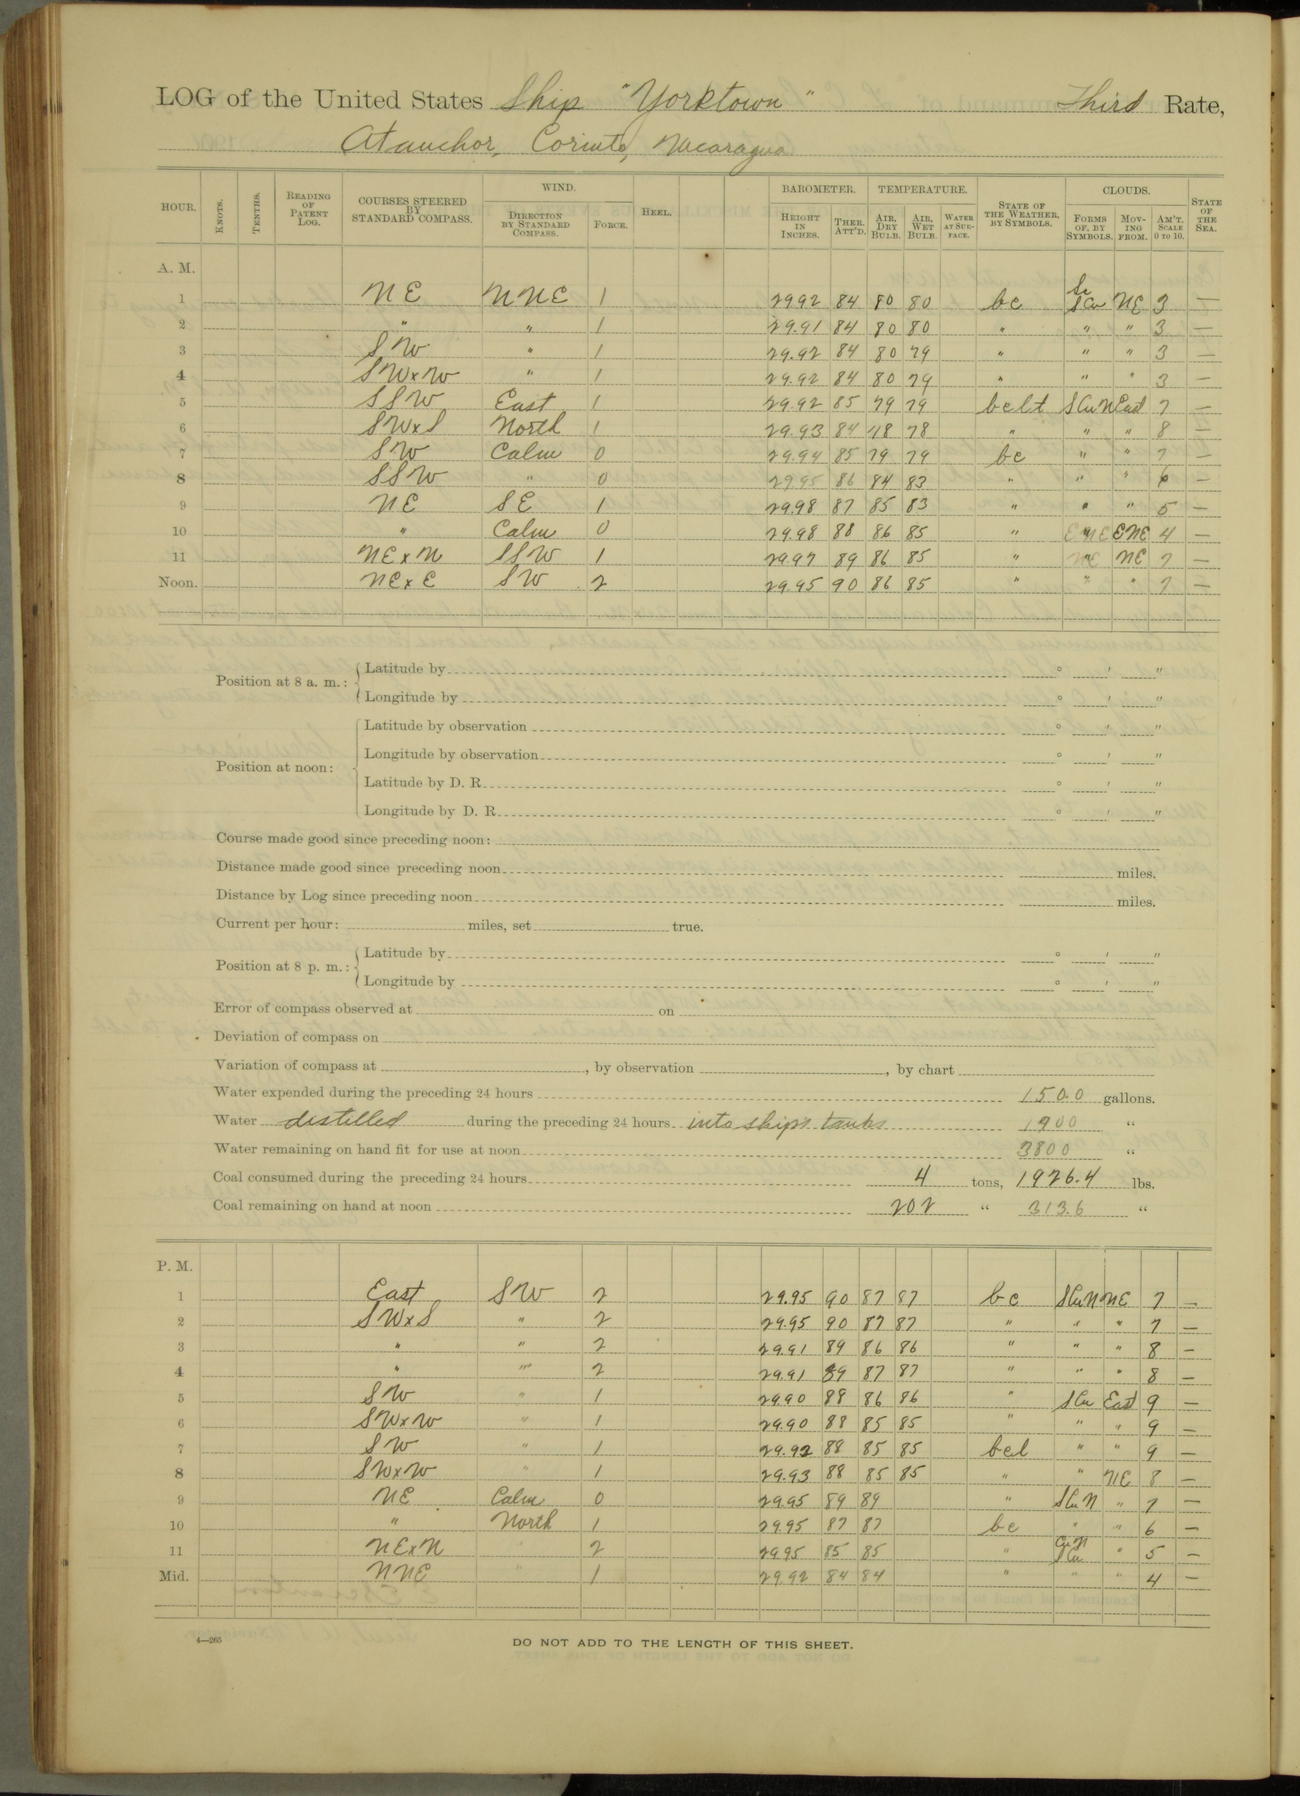 LOG of the United States Ship "Yorktown" Third Rate,
At anchor, Corinto, Nicaragua
HOUR. KNOTS. TENTHS. READING OF PATENT LOG. COURSES STEERED BY STANDARD COMPASS. WIND. DIRECTION BY STANDARD COMPASS. FORCE. HEEL. BAROMETER. HEIGHT IN INCHES. THER. ATT'D. TEMPERATURE. AIR, DRY BULB. AIR, WET BULB. WATER AT SURFACE. STATE OF THE WEATHER, BY SYMBOLS. CLOUDS. FORMS OF, BY SYMBOLS. MOVING FROM. AM'T. SCALE 0 TO 10. STATE OF THE SEA.
A. M.
1 NE NNE 1 29.92 84 80 80 bc SCu NE 3 —
2 " " 1 29.91 84 80 80 " " " 3 —
3 SW " 1 29.92 84 80 79 " " " 3 —
4 SWxW " 1 29.92 84 80 79 " " " 3 —
5 SSW East 1 29.92 85 79 79 bclt SCuN East 7 —
6 SWxS North 1 29.93 84 78 78 " " " 8 —
7 SW Calm 0 29.94 85 79 79 bc " " 7 —
8 SSW " 0 29.95 86 84 83 " " " 6 —
9 NE SE 1 29.98 87 85 83 " " " 5 —
10 " Calm 0 29.98 88 86 85 " " ENE 4 —
11 NExN SSW 1 29.97 89 86 85 " " NE 7 —
Noon. NExE SW 2 29.95 90 86 85 " " " 7 —
Position at 8 a. m.: Latitude by ° ' "
Longitude by ° ' "
Position at noon: Latitude by observation ° ' "
Longitude by observation ° ' "
Latitude by D. R. ° ' "
Longitude by D. R. ° ' "
Course made good since preceding noon:
Distance made good since preceding noon miles.
Distance by Log since preceding noon miles.
Current per hour: miles, set true.
Position at 8 p. m.: Latitude by ° ' "
Longitude by ° ' "
Error of compass observed at on
Deviation of compass on
Variation of compass at , by observation , by chart
Water expended during the preceding 24 hours 1500 gallons.
Water distilled during the preceding 24 hours into ships tanks 1900 "
Water remaining on hand fit for use at noon 3800 "
Coal consumed during the preceding 24 hours 4 tons, 1926.4 lbs.
Coal remaining on hand at noon 202 " 313.6 "
P. M.
1 East SW 2 29.95 90 87 87 bc SCuN NE 7 —
2 SWxS " 2 29.95 90 87 87 " " " 7 —
3 " " 2 29.91 89 86 86 " " " 8 —
4 " " 2 29.91 89 87 87 " " " 8 —
5 SW " 1 29.90 88 86 86 " SCu East 9 —
6 SWxW " 1 29.90 88 85 85 " " " 9 —
7 SW " 1 29.92 88 85 85 bcl " " 9 —
8 SWxW " 1 29.93 88 85 85 " " NE 8 —
9 NE Calm 0 29.95 89 89 " SCuN " 7 —
10 " North 1 29.95 87 87 bc " " 6 —
11 NExN " 2 29.95 85 85 " CuN SCu " 5 —
Mid. NNE " 1 29.92 84 84 " " " 4 —
4—265
DO NOT ADD TO THE LENGTH OF THIS SHEET.